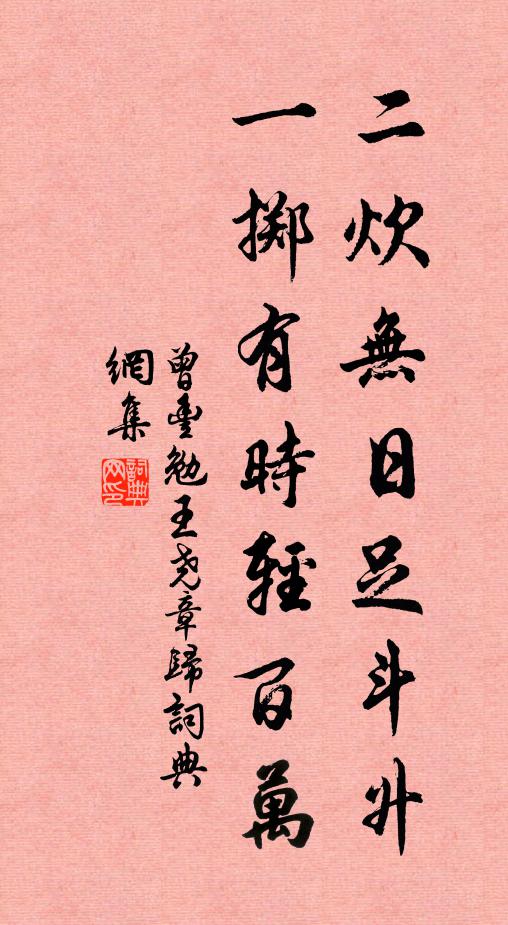 二炊無日足斗升
一擲有時輕百萬
曾豐勉王尧章歸詞典
網集
詞典
网印